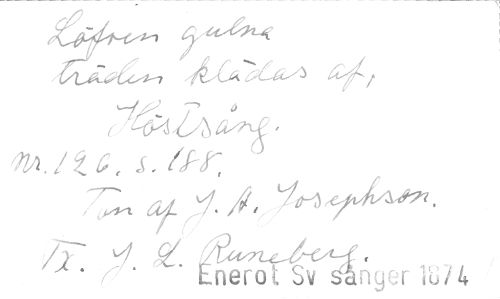 Löfven gulna
träden klädas af,
Höstsång.
Nr. 126. s. 188.
Ton af J. A. Josephson.
Tx. J. L. Runeberg.
Enerot Sv sånger 1874